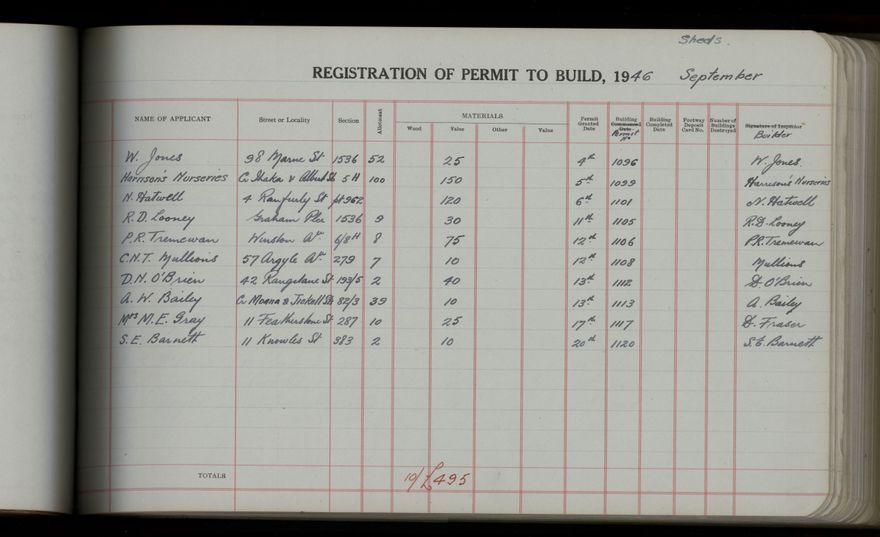 Sheds.
REGISTRATION OF PERMIT TO BUILD, 1946 September
NAME OF APPLICANT Street or Locality Section Allotment MATERIALS Wood Value Other Value Permit Granted Date Building Commenced Date Permit No Building Completed Date Footway Deposit Card No. Number of Buildings Destroyed Signature of Inspector Builder
W. Jones 98 Marne St 1536 52 25 4th 1096 W. Jones.
Harrison's Nurseries Cr Ihaka & Albert Sts 5H 100 150 5th 1099 Harrison's Nurseries
N. Hatwell 4 Ranfurly St pt 962 120 6th 1101 N. Hatwell
R.D. Looney Graham Plce 1536 9 30 11th 1105 R.D. Looney
P.R. Tremewan Winston Ave 6/8H 8 75 12th 1106 P.R. Tremewan
C.N.T. Mullions 57 Argyle Ave 279 7 10 12th 1108 Mullions
D.N. O'Brien 42 St 193/5 2 40 13th 1112 D. O'Brien
A. W. Bailey Cr Moana & Sts 82/3 39 10 13th 1113 A. Bailey
Mrs M.E. Gray 11 Featherstone St 287 10 25 17th 1117 D. Fraser
S.E. Barnett 11 Knowles St 383 2 10 20th 1120 S.E. Barnett
TOTALS 10/£495